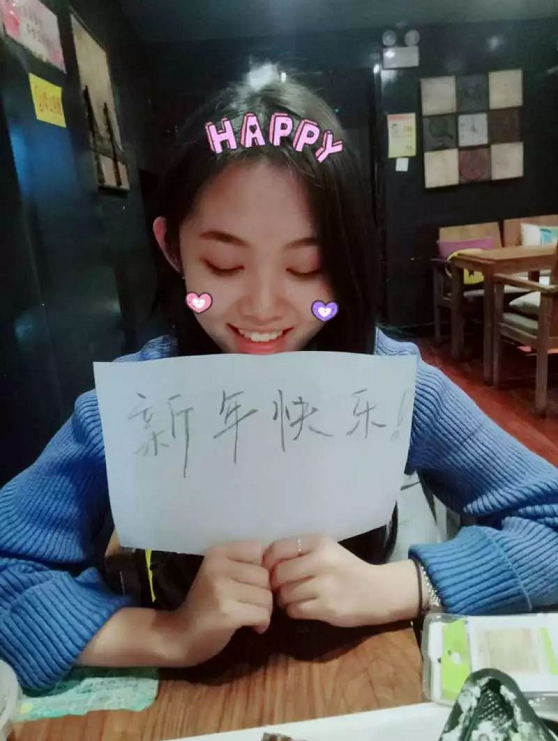 HAPPY
新年快乐!